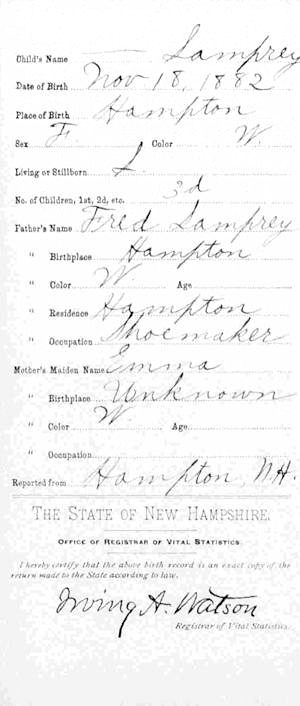 Child's Name Lamprey
Date of Birth Nov 18, 1882
Place of Birth Hampton
Sex F. Color W.
Living or Stillborn L
No. of Children, 1st, 2d, etc. 3d
Father's Name Fred Lamprey
" Birthplace Hampton
" Color W Age
" Residence Hampton
" Occupation Shoemaker
Mother's Maiden Name Emma
" Birthplace Unknown
" Color W Age
" Occupation
Reported from Hampton, N.H.
THE STATE OF NEW HAMPSHIRE.
OFFICE OF REGISTRAR OF VITAL STATISTICS.
I hereby certify that the above birth record is an exact copy of the
return made to the State according to law.
Irving A. Watson
Registrar of Vital Statistics.